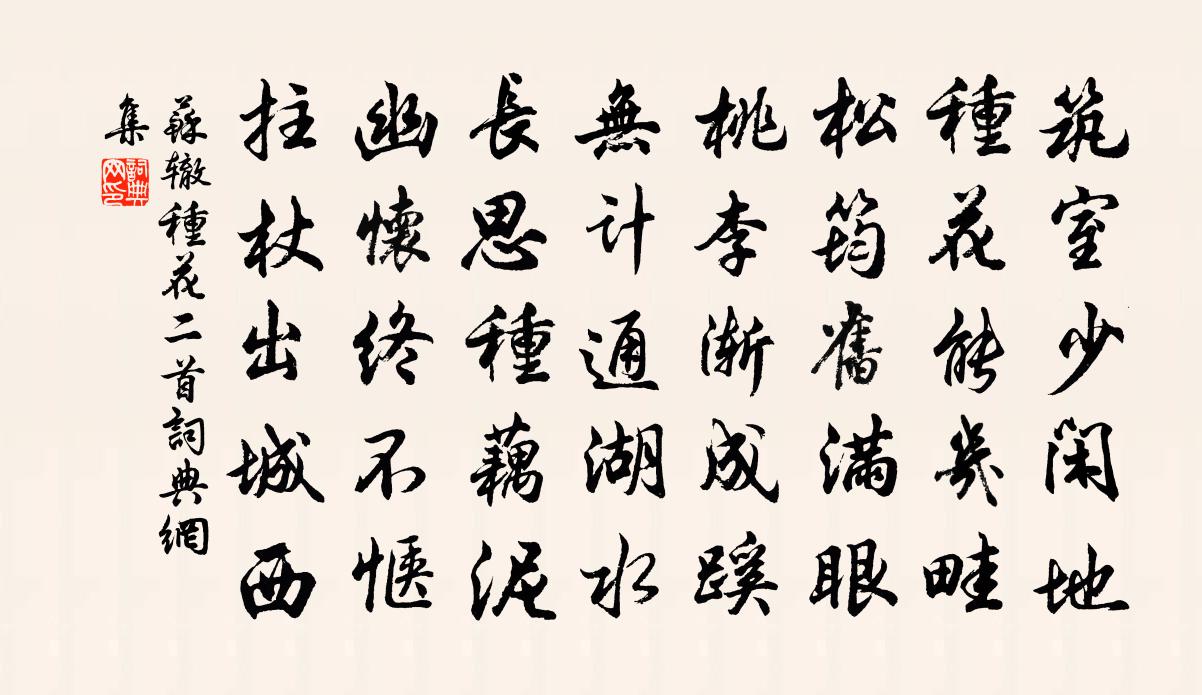 筑室少閑地
種花能幾畦
松筠舊滿眼
桃李漸成蹊
無計通湖水
長思種藕泥
幽懷終不愜
拄杖出城西
蘇辙種花二首詞典網
集
詞典網印